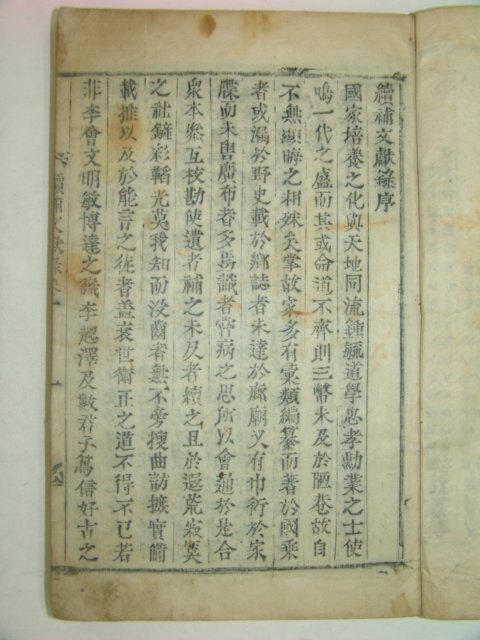 續補文獻錄序
國家培養之化與天地同流鍾毓道學忠孝勳業之士使
鳴一代之盛而其或命道不齊則三幣未及於陋巷故自
不無顯晦之相殊矣掌故家多有彙類編纂而著於國乘
者或漏於野史載於鄕誌者未達於廊廟又有巾衍於家
牒而未曾廣布者多爲識者嘗病之思所以會通於是合
衆本叅互校勘使遺者補之未及者續之且於遐荒寂寞
之社鏟彩韜光莫我知而没齒者無不旁搜曲訪據實備
載推以及於能言之徒者盖衰世衛正之道不得不已若
非李會文明敏博達之識李 澤及數君子篤信好古之
續補文獻錄序 一